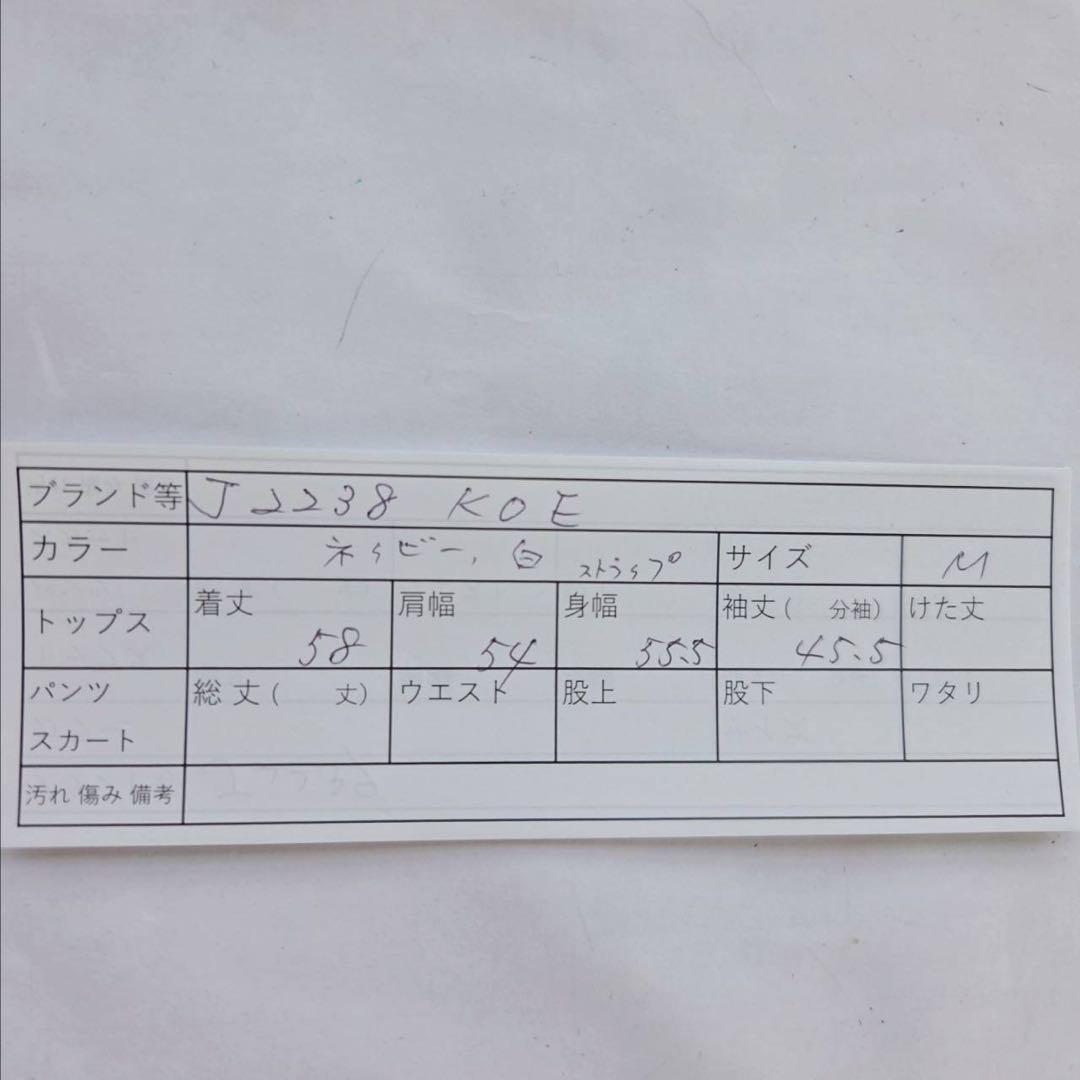 ブランド等 J2238 KOE
カラー ネイビー、白 ストラップ サイズ M
トップス 着丈 58 肩幅 54 身幅 55.5 袖丈( 分袖) 45.5 けた丈
パンツ スカート 総丈( 丈) ウエスト 股上 股下 ワタリ
汚れ 傷み 備考